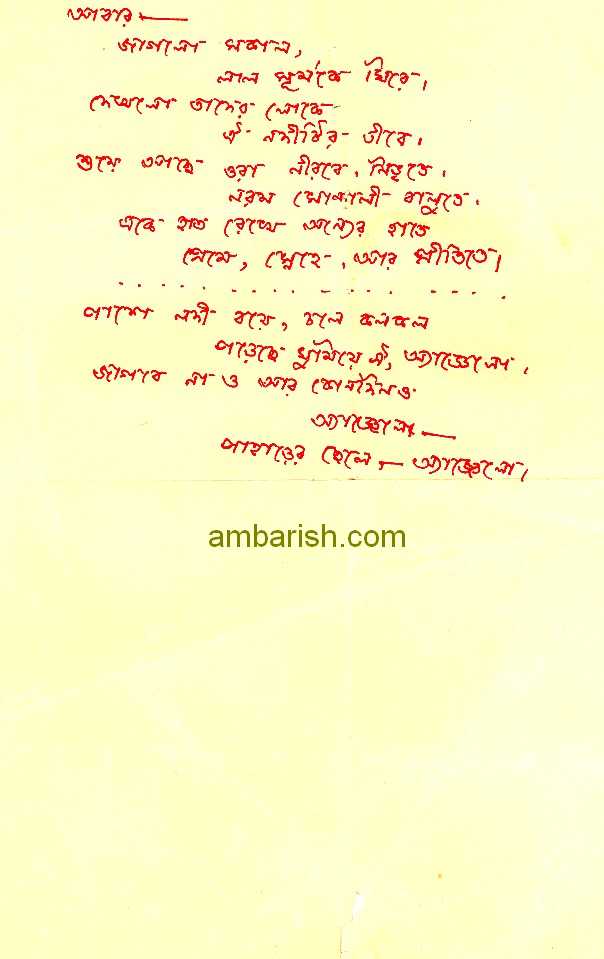 আবার —
জাগলো সকাল,
লাল সূর্যকে ঘিরে।
দেখলো তাদের লোকে
ঐ নদীটির তীরে।
শুয়ে আছে ওরা নীরবে, নিভৃতে।
নরম সোনালী বালুতে।
একে হাত রেখে অন্যের হাতে
প্রেমে, স্নেহে, আর প্রীতিতে।
পাশে নদী বয়ে, চলে কলকল
পড়েছে ঘুমিয়ে ঐ, অ্যাঞ্জেলো।
জাগবে না ও আর কোনদিনও
অ্যাঞ্জেলো —
পাহাড়ের ছেলে, — অ্যাঞ্জেলো।
ambarish.com